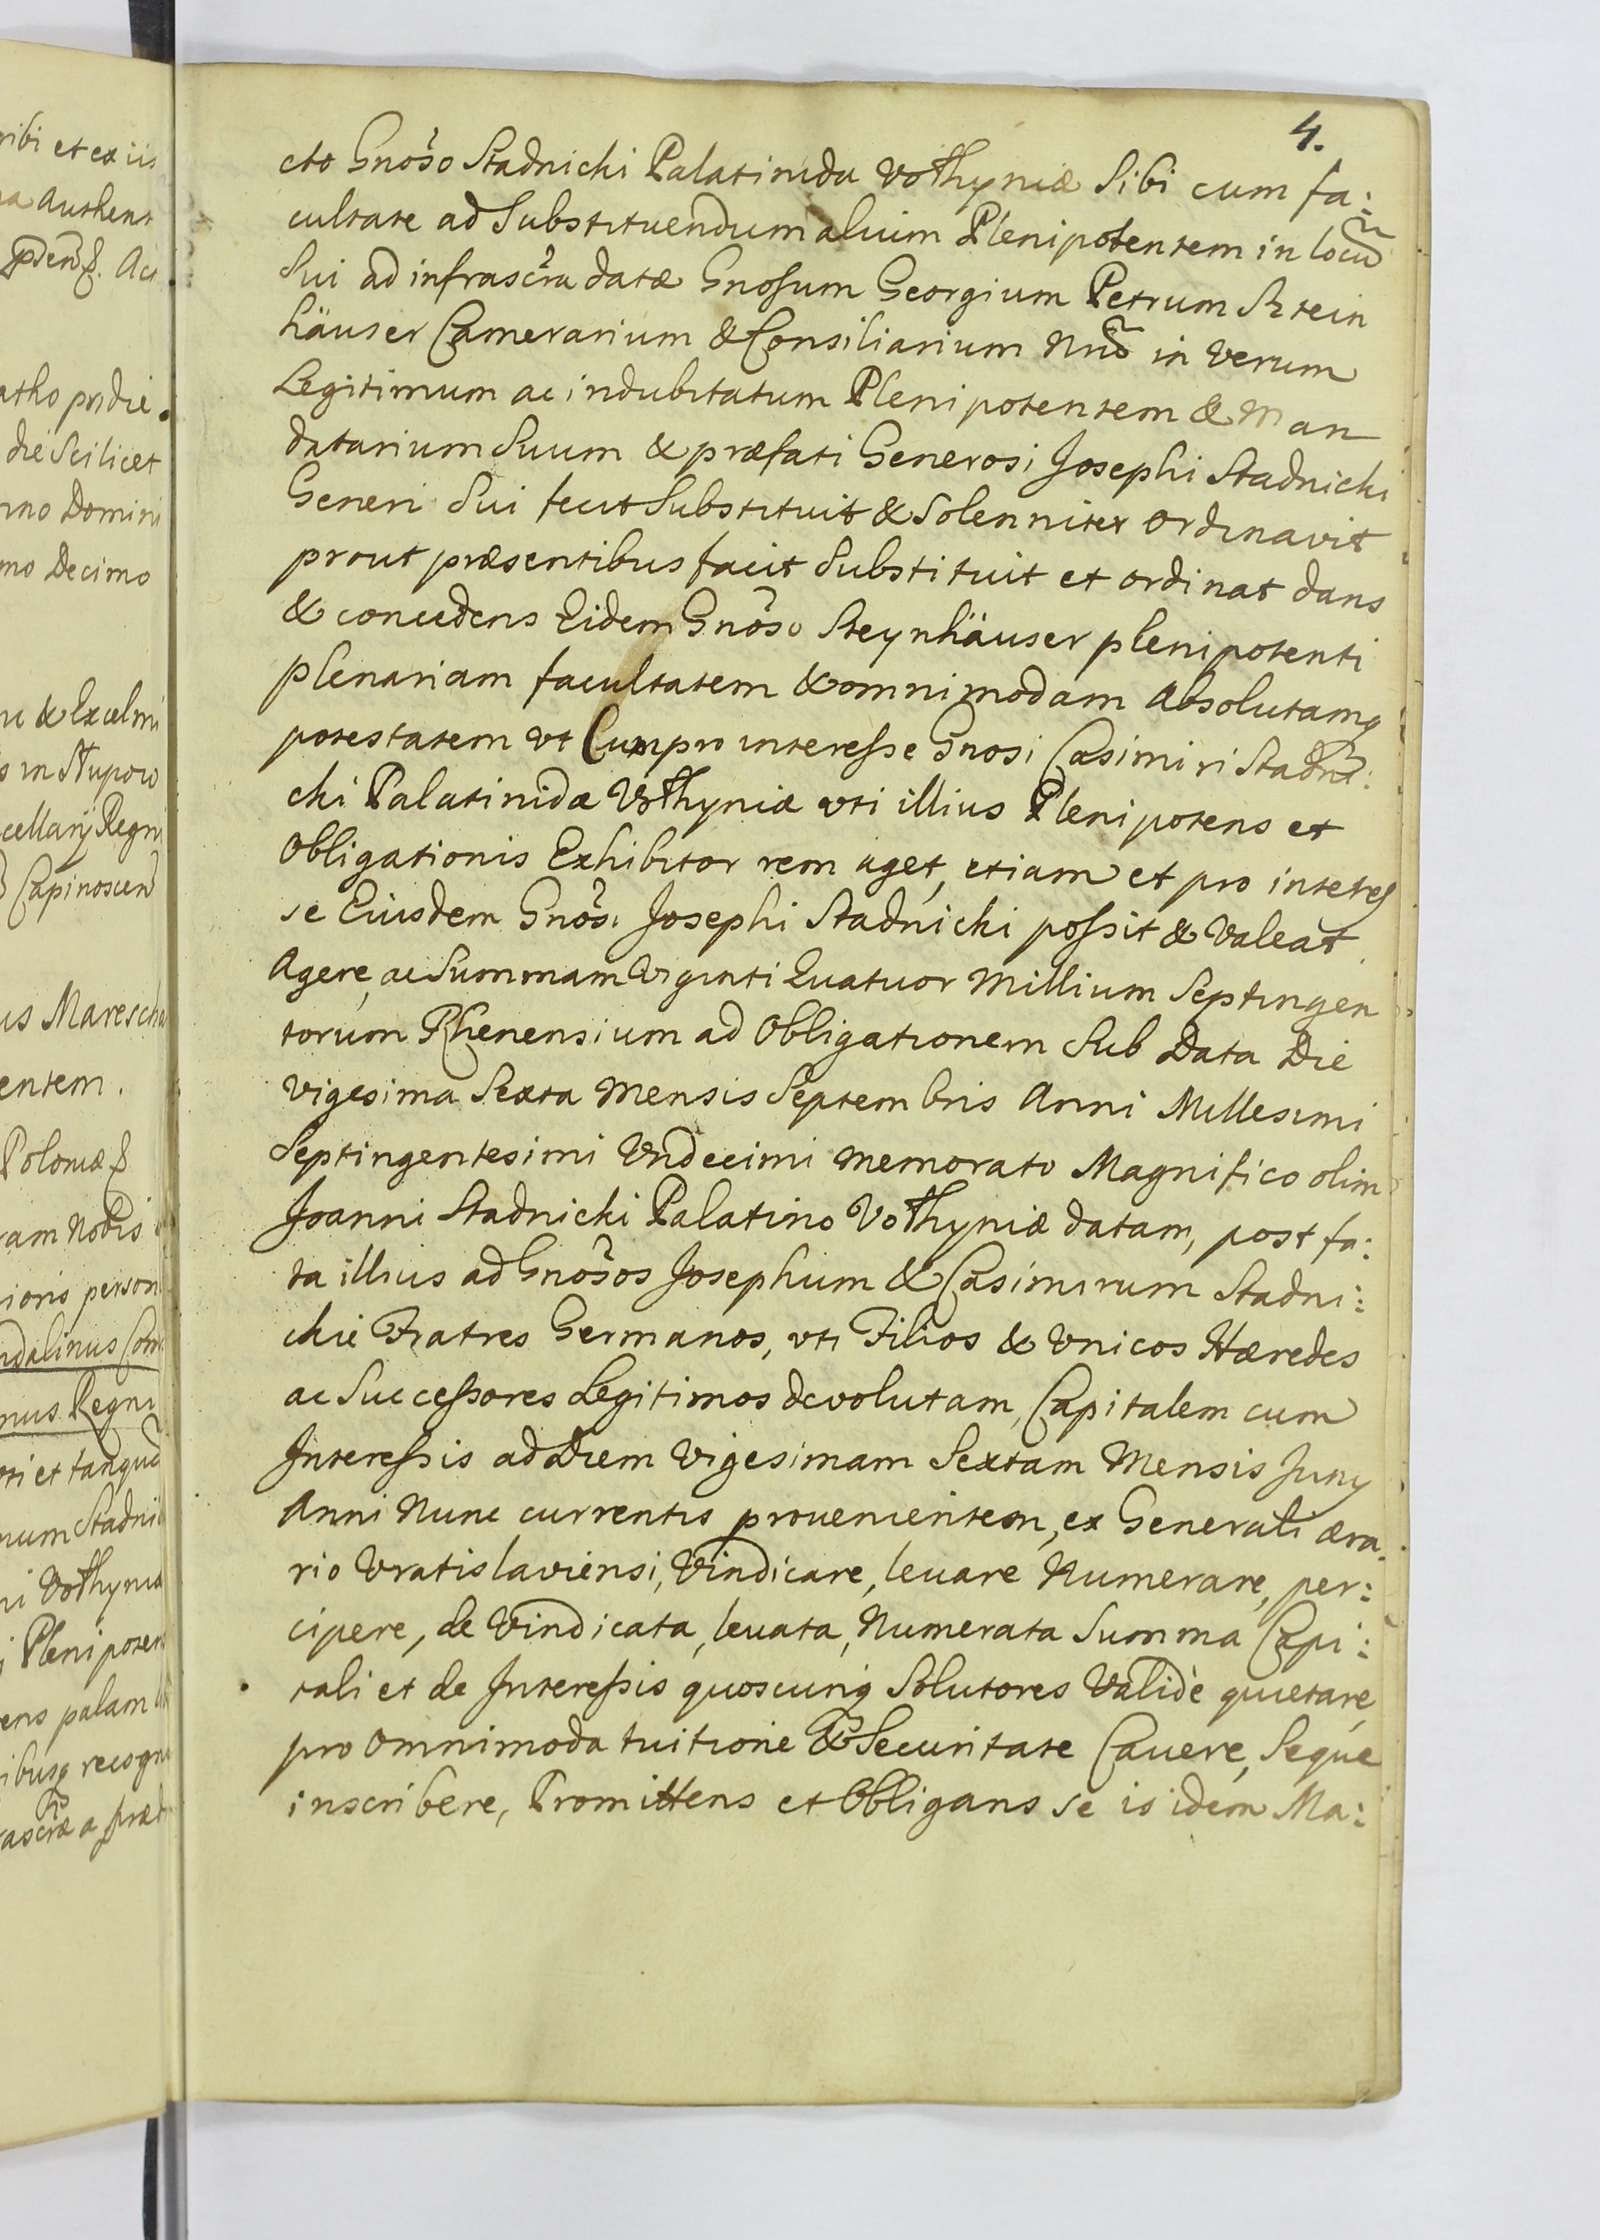 4.
cto Gnoso Stadnicki Palatinida Vołhyniæ Sibi cum fa:
cultate ad Substituendum alium Plenipotentem in locu
Sui ad infrascra datæ Gnosum Georgium Petrum Stein
häuser Camerarium & Consiliarium Nno in Verum
Legitimum ac indubitatum Plenipotentem & Man
datarium Suum & præfati Generosi Josephi Stadnicki
Generi Sui fecit Substituit & Solenniter Ordinavit
prout præsentibus facit Substituit et ordinat dans
& concedens Eidem Gnoso Steynhäuser plenipotenti
plenariam facultatem & omnimodam Absolutamq
potestatem vt Cum pro interesse Gnosi Casimiri Stadni:
cki Palatinidæ Vołhyniæ vti illius Plenipotens et
Obligationis Exhibitor rem aget, etiam et pro interes
se Eiusdem Gnosi Josephi Stadnicki possit & Valeat
Agere, ac Summam Viginti Quatuor Millium Septingen
torum Rhenensium ad Obligationem Sub Data Die
vigesima Sexta Mensis Septembris Anni Millesimi
Septingentesimi Vndecimi memorato Magnifico olim
Joanni Stadnicki Palatino Vołhyniæ datam, post fa:
ta illius ad Gnosos Josephum & Casimirum Stadni:
ckie Fratres Germanos, vti Filios & Vnicos Hæredes
ac Successores Legitimos devolutam, Capitalem cum
Interessis ad Diem Vigesimam Sextam Mensis Juny
Anni Nunc currentis provenientem, ex Generali æra
rio Vratislaviensi, Vindicare, levare Numerare, per:
cipere, de Vindicata, levata, Numerata Summa Capi:
tali et de Interessis quoscunq Solutores Validè quietare,
pro Omnimoda tuitione & Securitate Cavere, Seque
inscribere, Promittens et Obligans se is idem Ma: